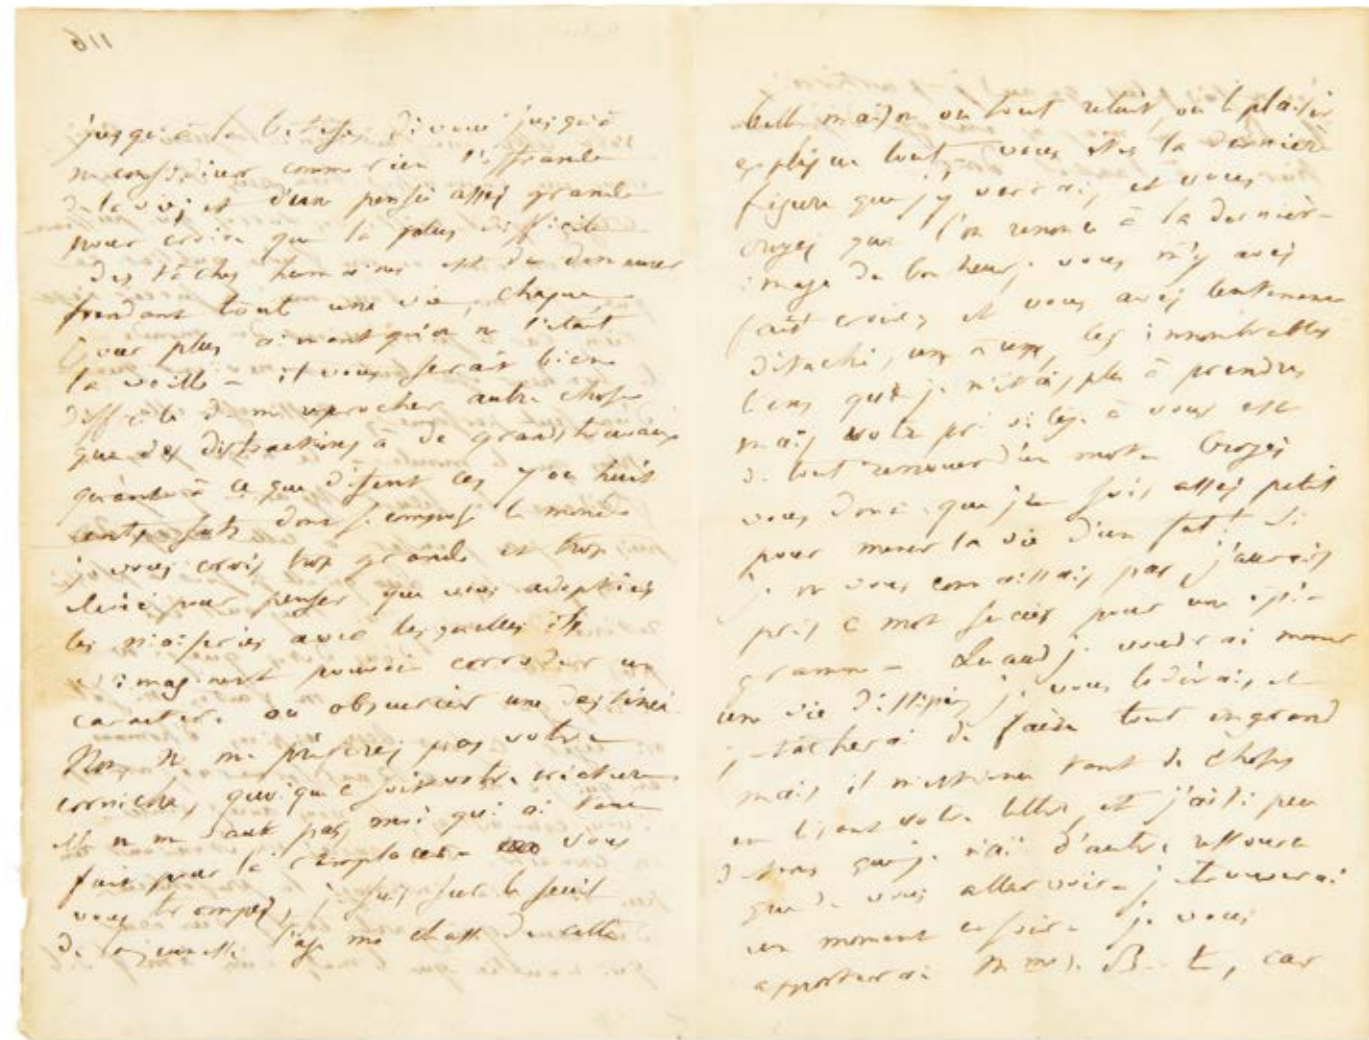 116
jusqu'à la bêtise, dévoué jusqu'à
ne considérer comme rien l'offrande
de la vie, et d'une pensée assez grande
pour croire que la plus difficile
des tâches humaines est de demeurer
pendant tout une vie, chaque
jour plus aimant qu'on ne l'était
la veille – il vous serait bien
difficile de me reprocher autre chose
que des distractions de grands travaux
quant à ce que disent ces 7 ou huit
cents fats dont se compose le monde
je vous crois trop grande et trop
pour penser que vous adoptiez
les niaiseries avec lesquelles ils
s'imaginent pouvoir corroder un
caractère ou obscurcir une destinée.
Non, ne me préférez pas votre
corniche, quoique ce soit votre
elle ne aut pas, moi qui ai tant
fait pour la remplacer – vous
vous trompez, je suis sur le seuil
de la jeunesse l'âge me chasse de cette
belle maison où tout reluit, où le plaisir
explique tout vous êtes la dernière
figure que j'y verrai, et vous
croyez que l'on renonce à la dernière
image du bonheur. vous m'y avez
fait croire, et vous avez lentement
détaché, un à un, les innombrables
liens que je m'étais plu à prendre,
mais votre privilège à vous est
de tout renouer d'un mot – Croyez
vous donc que je sois assez petit
pour mener la vie d'un fat! Si
je ne vous connaissais pas j'aurais
pris ce mot pour une épi-
gramme – Quand je voudrai mener
une vie dissipée je vous le dirais, et
je tâcherai de faire tout en grand
mais il m'est venu tant de choses
en lisant votre lettre, et j'ai si peu
de tems que je n'ai d'autre ressource
que de vous aller voir – je trouverai
un moment ce soir – je vous
apporterai B – t, car